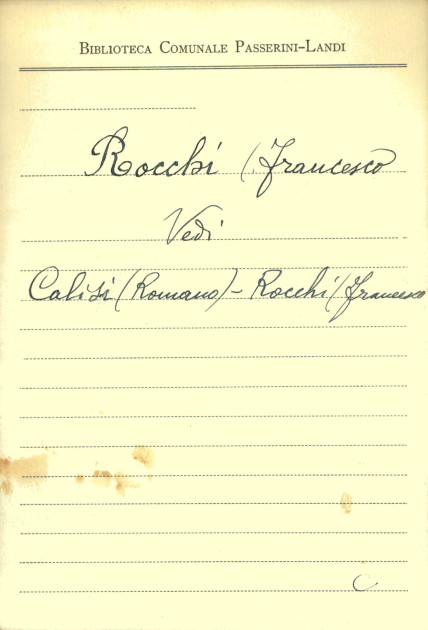 BIBLIOTECA COMUNALE PASSERINI-LANDI
Rocchi (Francesco
Vedi
Calisi (Romano) - Rocchi (Francesco
C